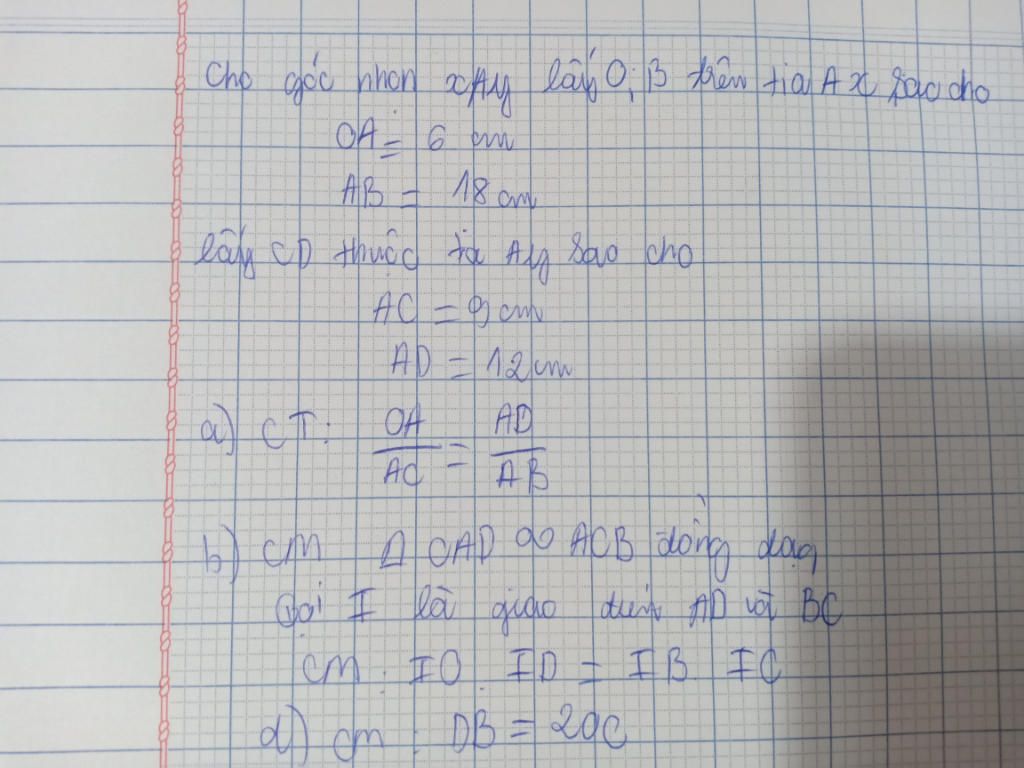 Cho góc nhọn xAy lấy O; B trên tia Ax sao cho
OA = 6 cm
AB = 18 cm
lấy CD thuộc tia Ay sao cho
AC = 9 cm
AD = 12 cm
a) CT: OA/AC = AD/AB
b) CM Δ OAD ∞ ACB đồng dạng
Gọi I là giao điểm AD với BC
CM: IO. ID = IB. IC
d) cm: DB = 2OC